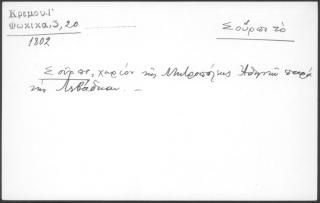 Κρεμου Γ'
Φωκικα, 3, 20
1802
Σοῦρπι τὸ
Σοῦρπι, χωρίον τῆς Μητροπόλεως Ἀθηνῶν παρά
τῆς Λεβαδείαν. –